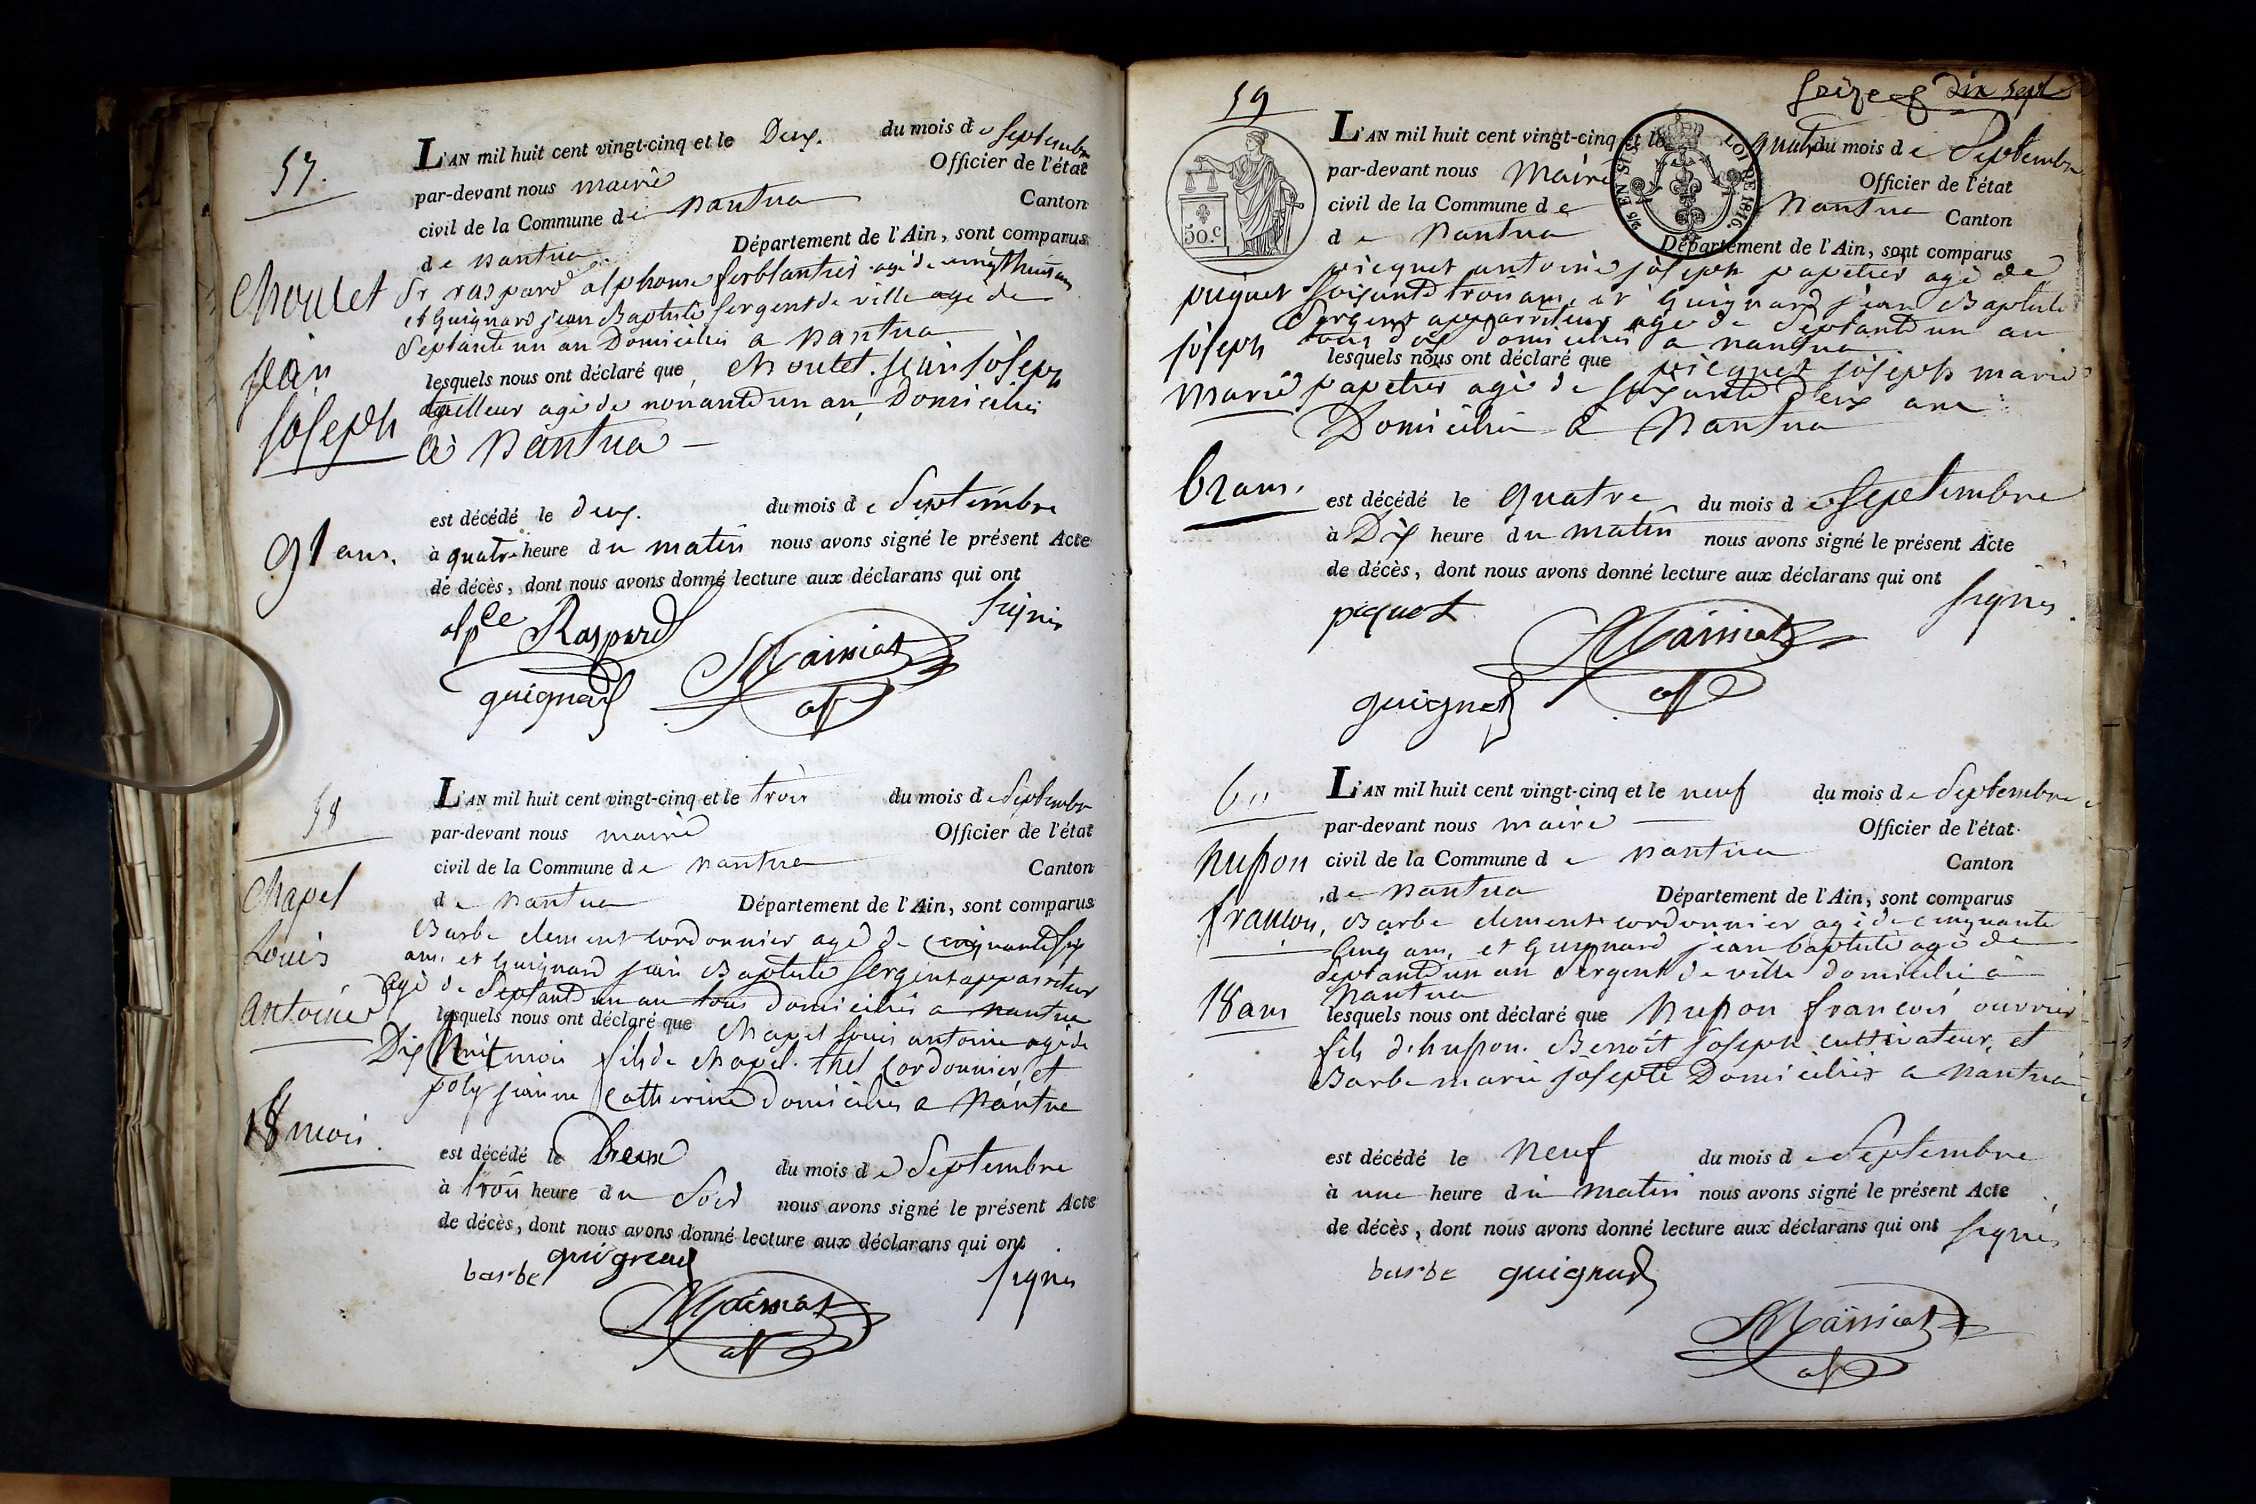 57.
L'AN mil huit cent vingt-cinq et le Deux. du mois de Septembre
par-devant nous maire Officier de l'état
civil de la Commune de Nantua Canton
de Nantua Département de l'Ain, sont comparus
Choulet
Sr raspard alphonse ferblantier agé de vingt huit ans
et Guignard jean Baptiste Sergent de ville age de
Septante un an Domiciliés a Nantua
jean
lesquels nous ont déclaré que Choulet jean joseph
joseph
tailleur agé de nonante un an, Domicilié
à Nantua
est décédé le deux. du mois de Septembre
91 ans.
à quatre heure du matin nous avons signé le présent Acte
de décès, dont nous avons donné lecture aux déclarans qui ont
signés
alpce Raspard
Mainiat
guignard
58
L'AN mil huit cent vingt-cinq et le trois du mois de Septembre
par-devant nous maire Officier de l'état
civil de la Commune de Nantua Canton
Chapel
de Nantua Département de l'Ain, sont comparus
Louis
Barbe clement cordonnier agé de cinquante six
ans, et Guignard jean Baptiste Sergent appariteur
Antoine
agé de Septante un an tous domiciliés a Nantua
lesquels nous ont déclaré que Chapel Louis antoine agé de
Dix huit mois fils de Chapel thel Cordonnier et
poly jeanne Catherine domiciliés a Nantua
18 mois.
est décédé le Deux du mois de Septembre
à trois heure du Soir nous avons signé le présent Acte
de décès, dont nous avons donné lecture aux déclarans qui ont
signés
barbe guignard
Mainiat
Seize & Dix sept
59
50.c
LOI DE 1816.
L'AN mil huit cent vingt-cinq et le quatre du mois de Septembre
par-devant nous Maire Officier de l'état
civil de la Commune de Nantua Canton
de Nantua Département de l'Ain, sont comparus
piequet antoine joseph papetier agé de
piquet
soixante trois ans, et Guignard jean Baptiste
Sergent appariteur agé de Septante un an
joseph
tous deux domiciliés a nantua
lesquels nous ont déclaré que piequet joseph marie
marie
papetier agé de soixante deux ans
Domicilié à Nantua
62 ans.
est décédé le quatre du mois de Septembre
à Dix heure du matin nous avons signé le présent Acte
de décès, dont nous avons donné lecture aux déclarans qui ont
signés
piquet
Mainiat
guignard
60
L'AN mil huit cent vingt-cinq et le neuf du mois de Septembre
par-devant nous maire Officier de l'état
hugon
civil de la Commune de Nantua Canton
de Nantua Département de l'Ain, sont comparus
francois,
Barbe clement cordonnier agé de cinquante
Cinq ans, et Guignard jean baptiste agé de
septante un an Sergent de ville domicilié à
Nantua
18 ans
lesquels nous ont déclaré que hugon francois ouvrier
fils d'hugon Benoit joseph cultivateur, et
Barbe marie josepte Domiciliés a Nantua
est décédé le Neuf du mois de Septembre
à une heure du matin nous avons signé le présent Acte
de décès, dont nous avons donné lecture aux déclarans qui ont signés
barbe guignard
Mainiat